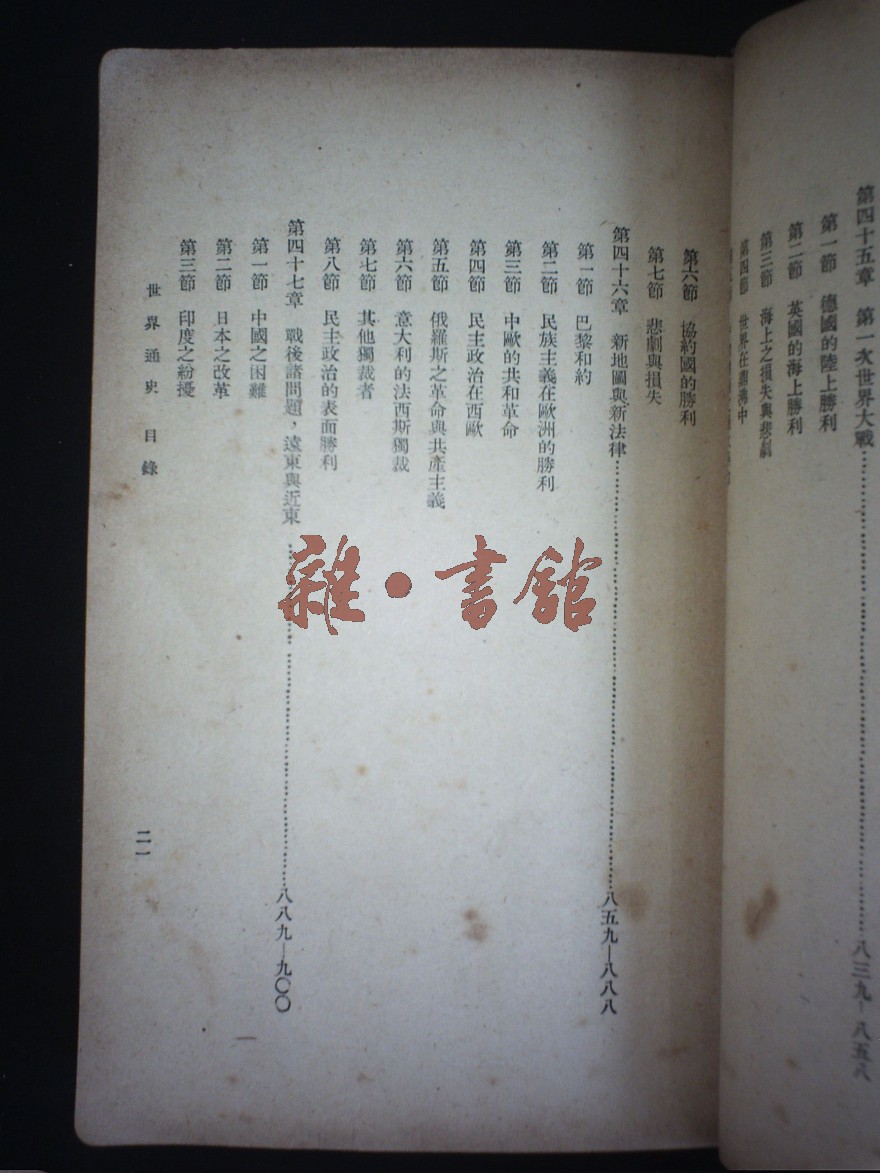 第四十五章 第一次世界大戰……………八三九—八五八
第一節 德國的陸上勝利
第二節 英國的海上勝利
第三節 海上之損失與悲劇
第四節 世界在鼎沸中
第六節 協約國的勝利
第七節 悲劇與損失
第四十六章 新地圖與新法律……………八五九—八八八
第一節 巴黎和約
第二節 民族主義在歐洲的勝利
第三節 中歐的共和革命
第四節 民主政治在西歐
第五節 俄羅斯之革命與共產主義
第六節 意大利的法西斯獨裁
第七節 其他獨裁者
第八節 民主政治的表面勝利
第四十七章 戰後諸問題，遠東與近東……………八八九—九〇〇
第一節 中國之困難
第二節 日本之改革
第三節 印度之紛擾
世界通史 目錄
二一
雜·書館